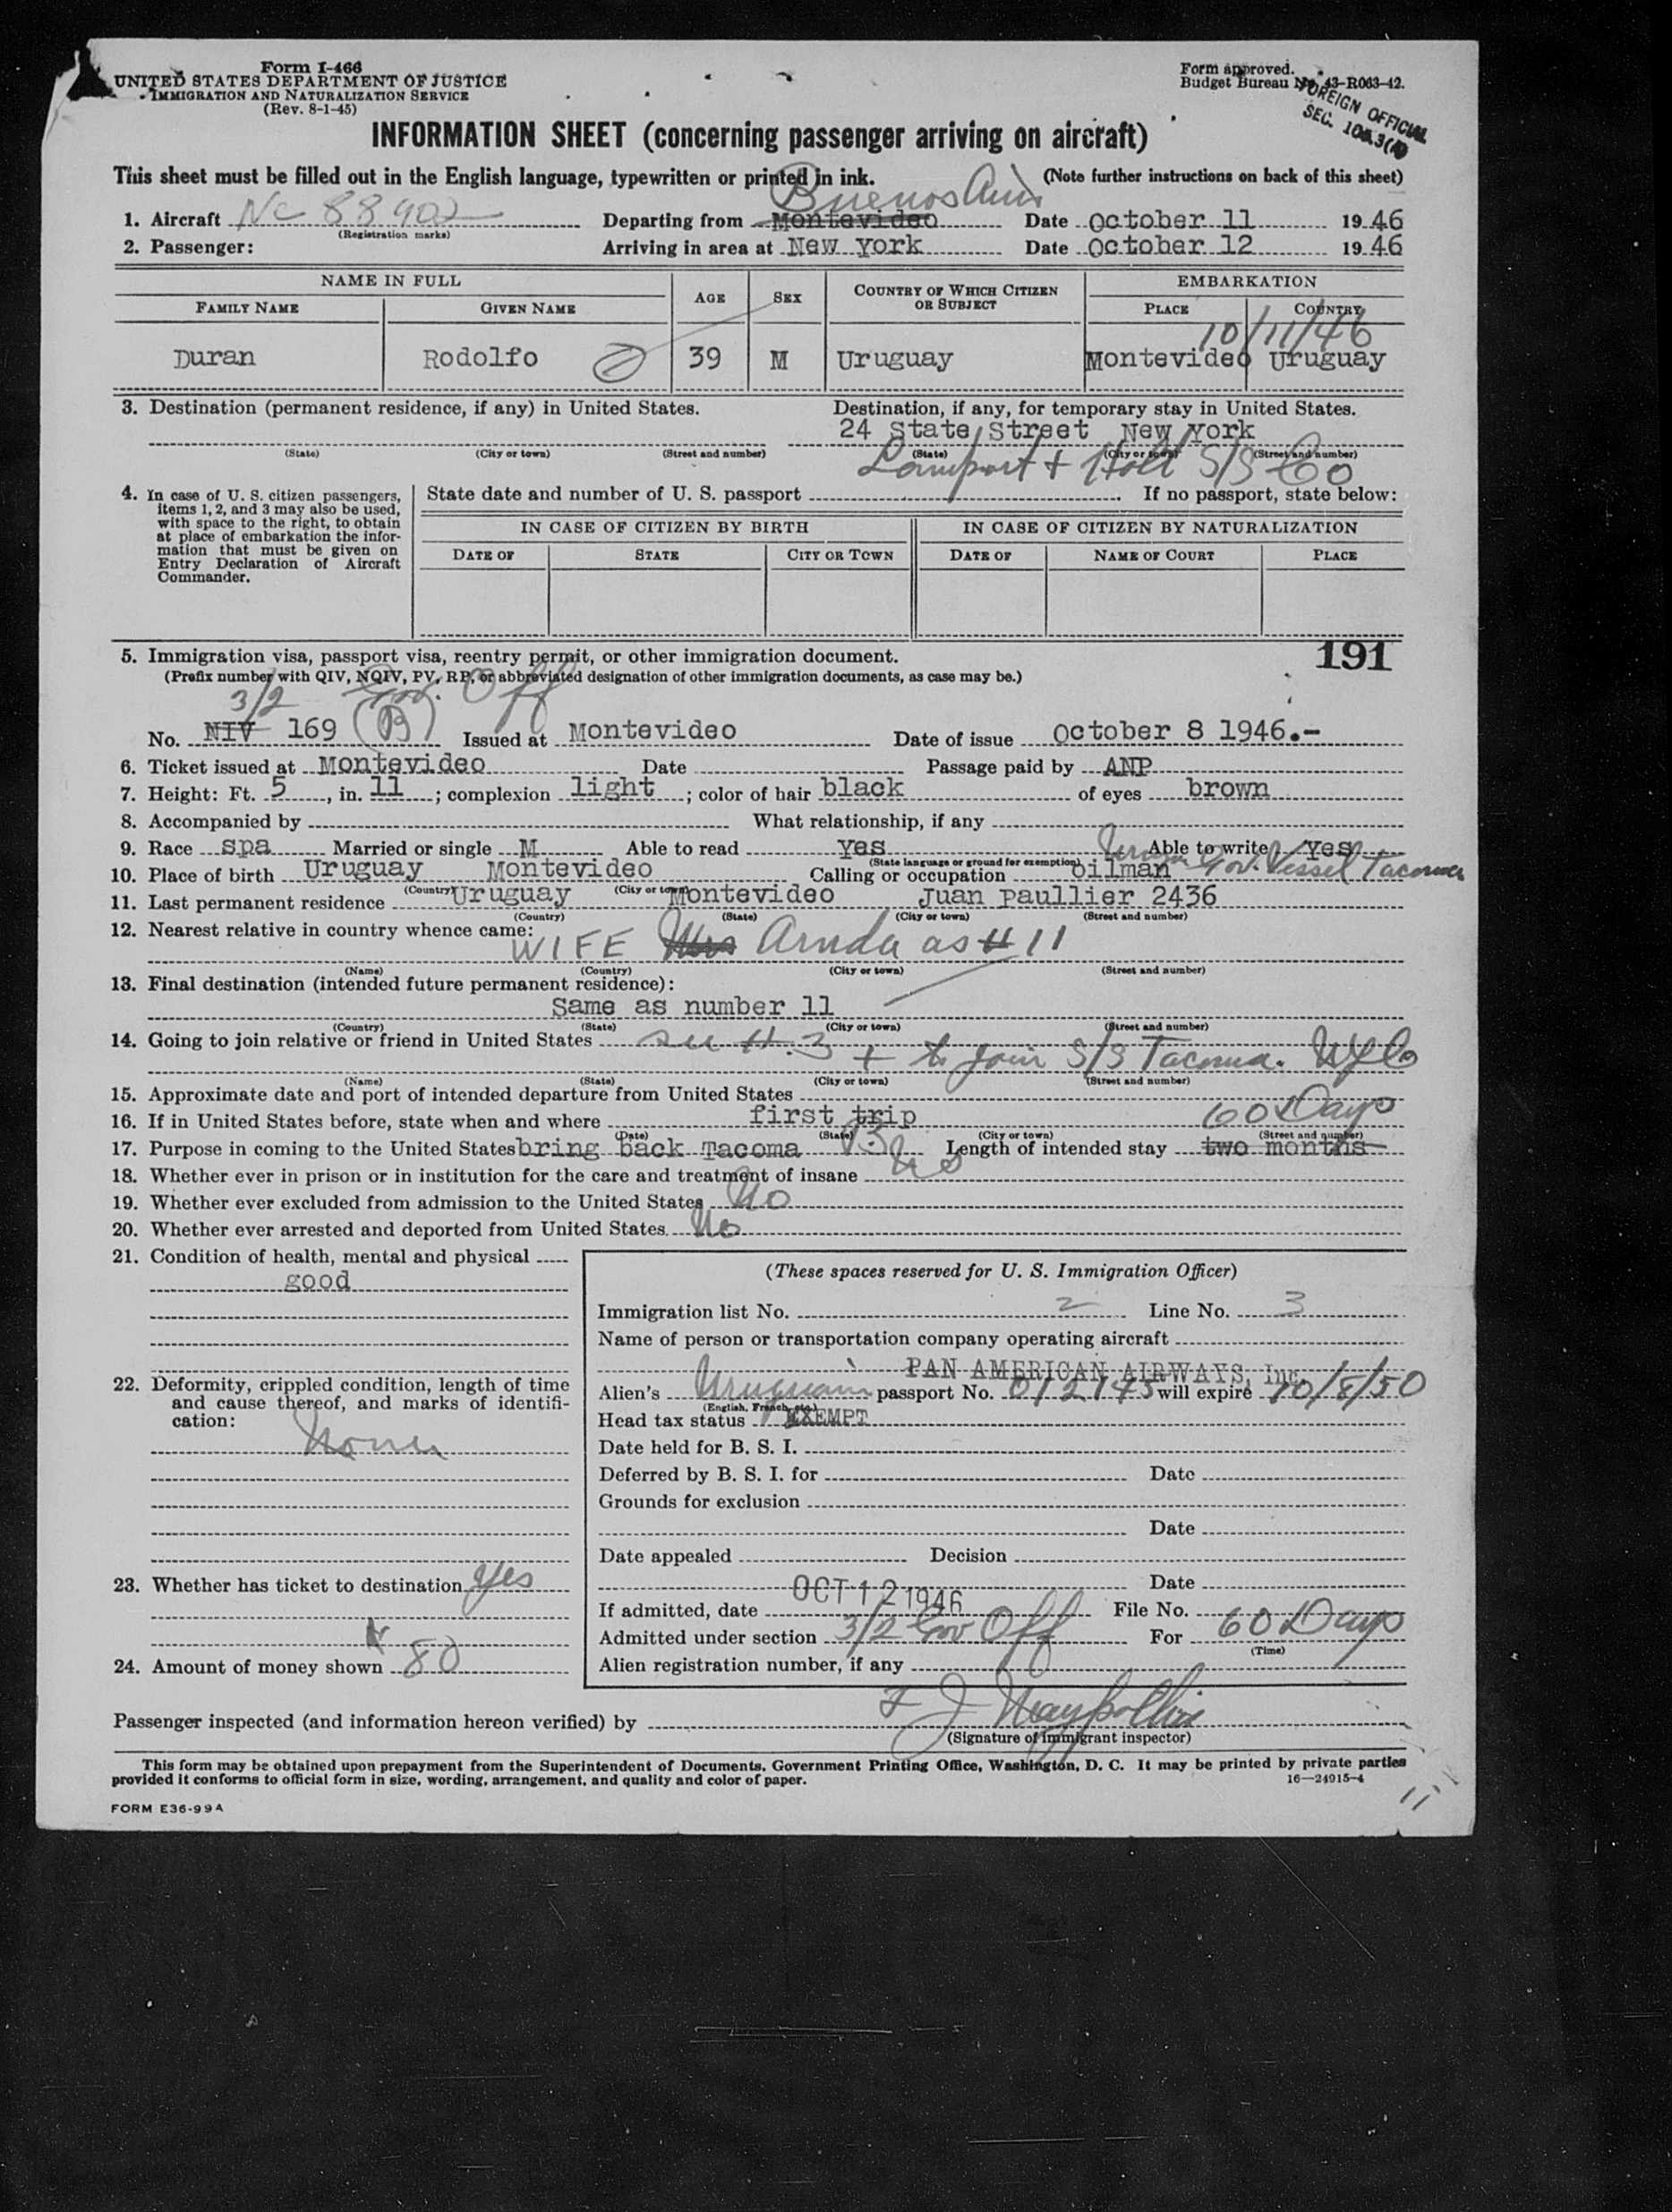 Form I-466
UNITED STATES DEPARTMENT OF JUSTICE
IMMIGRATION AND NATURALIZATION SERVICE
(Rev. 8-1-45)
Form approved.
Budget Bureau No. 43-R063-42.
FOREIGN OFFICIAL
INFORMATION SHEET (concerning passenger arriving on aircraft)
This sheet must be filled out in the English language, typewritten or printed in ink. (Note further instructions on back of this sheet)
Buenos
1. Aircraft NC 88902 Departing from Montevideo Date October 11 1946
(Registration marks)
2. Passenger: Arriving in area at New York Date October 12 1946
NAME IN FULL AGE SEX COUNTRY OF WHICH CITIZEN OR SUBJECT EMBARKATION
FAMILY NAME GIVEN NAME PLACE COUNTRY
10/11/46
Duran Rodolfo 39 M Uruguay Montevideo Uruguay
3. Destination (permanent residence, if any) in United States. Destination, if any, for temporary stay in United States.
24 State Street New York
(State) (City or town) (Street and number) (State) (City or town) (Street and number)
Lamport + Holt S/S Co
4. In case of U. S. citizen passengers, items 1, 2, and 3 may also be used, with space to the right, to obtain at place of embarkation the information that must be given on Entry Declaration of Aircraft Commander.
State date and number of U. S. passport If no passport, state below:
IN CASE OF CITIZEN BY BIRTH IN CASE OF CITIZEN BY NATURALIZATION
DATE OF STATE CITY OR TOWN DATE OF NAME OF COURT PLACE
191
5. Immigration visa, passport visa, reentry permit, or other immigration document.
(Prefix number with QIV, NQIV, PV, RP, or abbreviated designation of other immigration documents, as case may be.)
3/2 Gov. Off
No. NIV 169 (B) Issued at Montevideo Date of issue October 8 1946.-
6. Ticket issued at Montevideo Date Passage paid by ANP
7. Height: Ft. 5, in. 11; complexion light; color of hair black of eyes brown
8. Accompanied by What relationship, if any
9. Race spa Married or single M Able to read yes Able to write yes
(State language or ground for exemption)
10. Place of birth Uruguay Montevideo Calling or occupation oilman Gov. Vessel Tacoma
(Country) (City or town)
11. Last permanent residence Uruguay Montevideo Juan Paullier 2436
(Country) (State) (City or town) (Street and number)
12. Nearest relative in country whence came:
WIFE Mrs as # 11
(Name) (Country) (City or town) (Street and number)
13. Final destination (intended future permanent residence):
Same as number 11
(Country) (State) (City or town) (Street and number)
14. Going to join relative or friend in United States see #.3
+ to join S/S Tacoma. NYC
(Name) (State) (City or town) (Street and number)
15. Approximate date and port of intended departure from United States
60 Days
16. If in United States before, state when and where first trip
(Date) (State) (City or town) (Street and number)
17. Purpose in coming to the United States bring back Tacoma B Length of intended stay two months
18. Whether ever in prison or in institution for the care and treatment of insane No
19. Whether ever excluded from admission to the United States No
20. Whether ever arrested and deported from United States No
21. Condition of health, mental and physical
good
22. Deformity, crippled condition, length of time and cause thereof, and marks of identification:
None
23. Whether has ticket to destination yes
24. Amount of money shown 80
(These spaces reserved for U. S. Immigration Officer)
Immigration list No. 2 Line No. 3
Name of person or transportation company operating aircraft
PAN AMERICAN AIRWAYS, Inc.
Alien's Uruguain passport No. 012145 will expire 10/8/50
(English, French, etc.)
Head tax status EXEMPT
Date held for B. S. I.
Deferred by B. S. I. for Date
Grounds for exclusion
Date
Date appealed Decision
Date
If admitted, date OCT 12 1946 File No.
Admitted under section 3/2 Gov Off For 60 Days
(Time)
Alien registration number, if any
Passenger inspected (and information hereon verified) by
(Signature of immigrant inspector)
This form may be obtained upon prepayment from the Superintendent of Documents, Government Printing Office, Washington, D. C. It may be printed by private parties
provided it conforms to official form in size, wording, arrangement, and quality and color of paper. 16—24915-4
FORM E36-99A
11